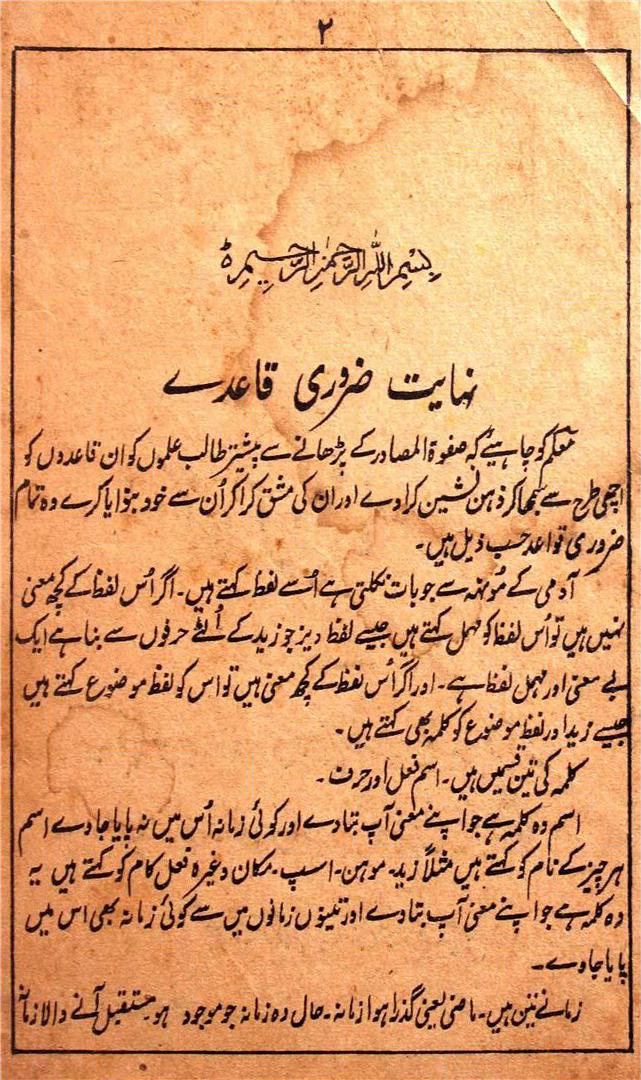 ۲
بِسْمِ اللّٰهِ الرَّحْمٰنِ الرَّحِيْمِ ہ
نہایت ضروری قاعدے
معلم کو چاہیئے کہ صفوۃ المصادر کے پڑھانے سے پیشتر طالب علموں کو ان قاعدوں کو
اچھی طرح سے سمجھا کر ذہن نشین کرادے اور ان کی مشق کراکر اُن سے خود بنوایا کرے وہ تمام
ضروری قواعد حسب ذیل ہیں۔
آدمی کے مُونہہ سے جو بات نکلتی ہے اُسے لفظ کہتے ہیں۔ اگر اُس لفظ کے کچھ معنی
نہیں ہیں تو اُس لفظ کو مہمل کہتے ہیں جیسے لفظ دیز جو زید کے اُلٹے حرفوں سے بنا ہے ایک
بے معنی اور مہمل لفظ ہے۔ اور اگر اُس لفظ کے کچھ معنی ہیں تو اس کو لفظ موضوع کہتے ہیں
جیسے زید اور لفظ موضوع کو کلمہ بھی کہتے ہیں۔
کلمہ کی تین قسمیں ہیں۔ اسم فعل اور حرف۔
اسم وہ کلمہ ہے جو اپنے معنی آپ بتادے اور کوئی زمانہ اُس میں نہ پایا جاوے اسم
ہر چیز کے نام کو کہتے ہیں مثلاً زید۔ موہن۔ اسپ۔ مکان وغیرہ فعل کام کو کہتے ہیں یہ
وہ کلمہ ہے جو اپنے معنی آپ بتادے اور تینوں زمانوں میں سے کوئی زمانہ بھی اس میں
پایا جاوے۔
زمانے تین ہیں۔ ماضی یعنی گذرا ہوا زمانہ۔ حال وہ زمانہ جو موجود ہو مستقبل آنے والا زمانہ